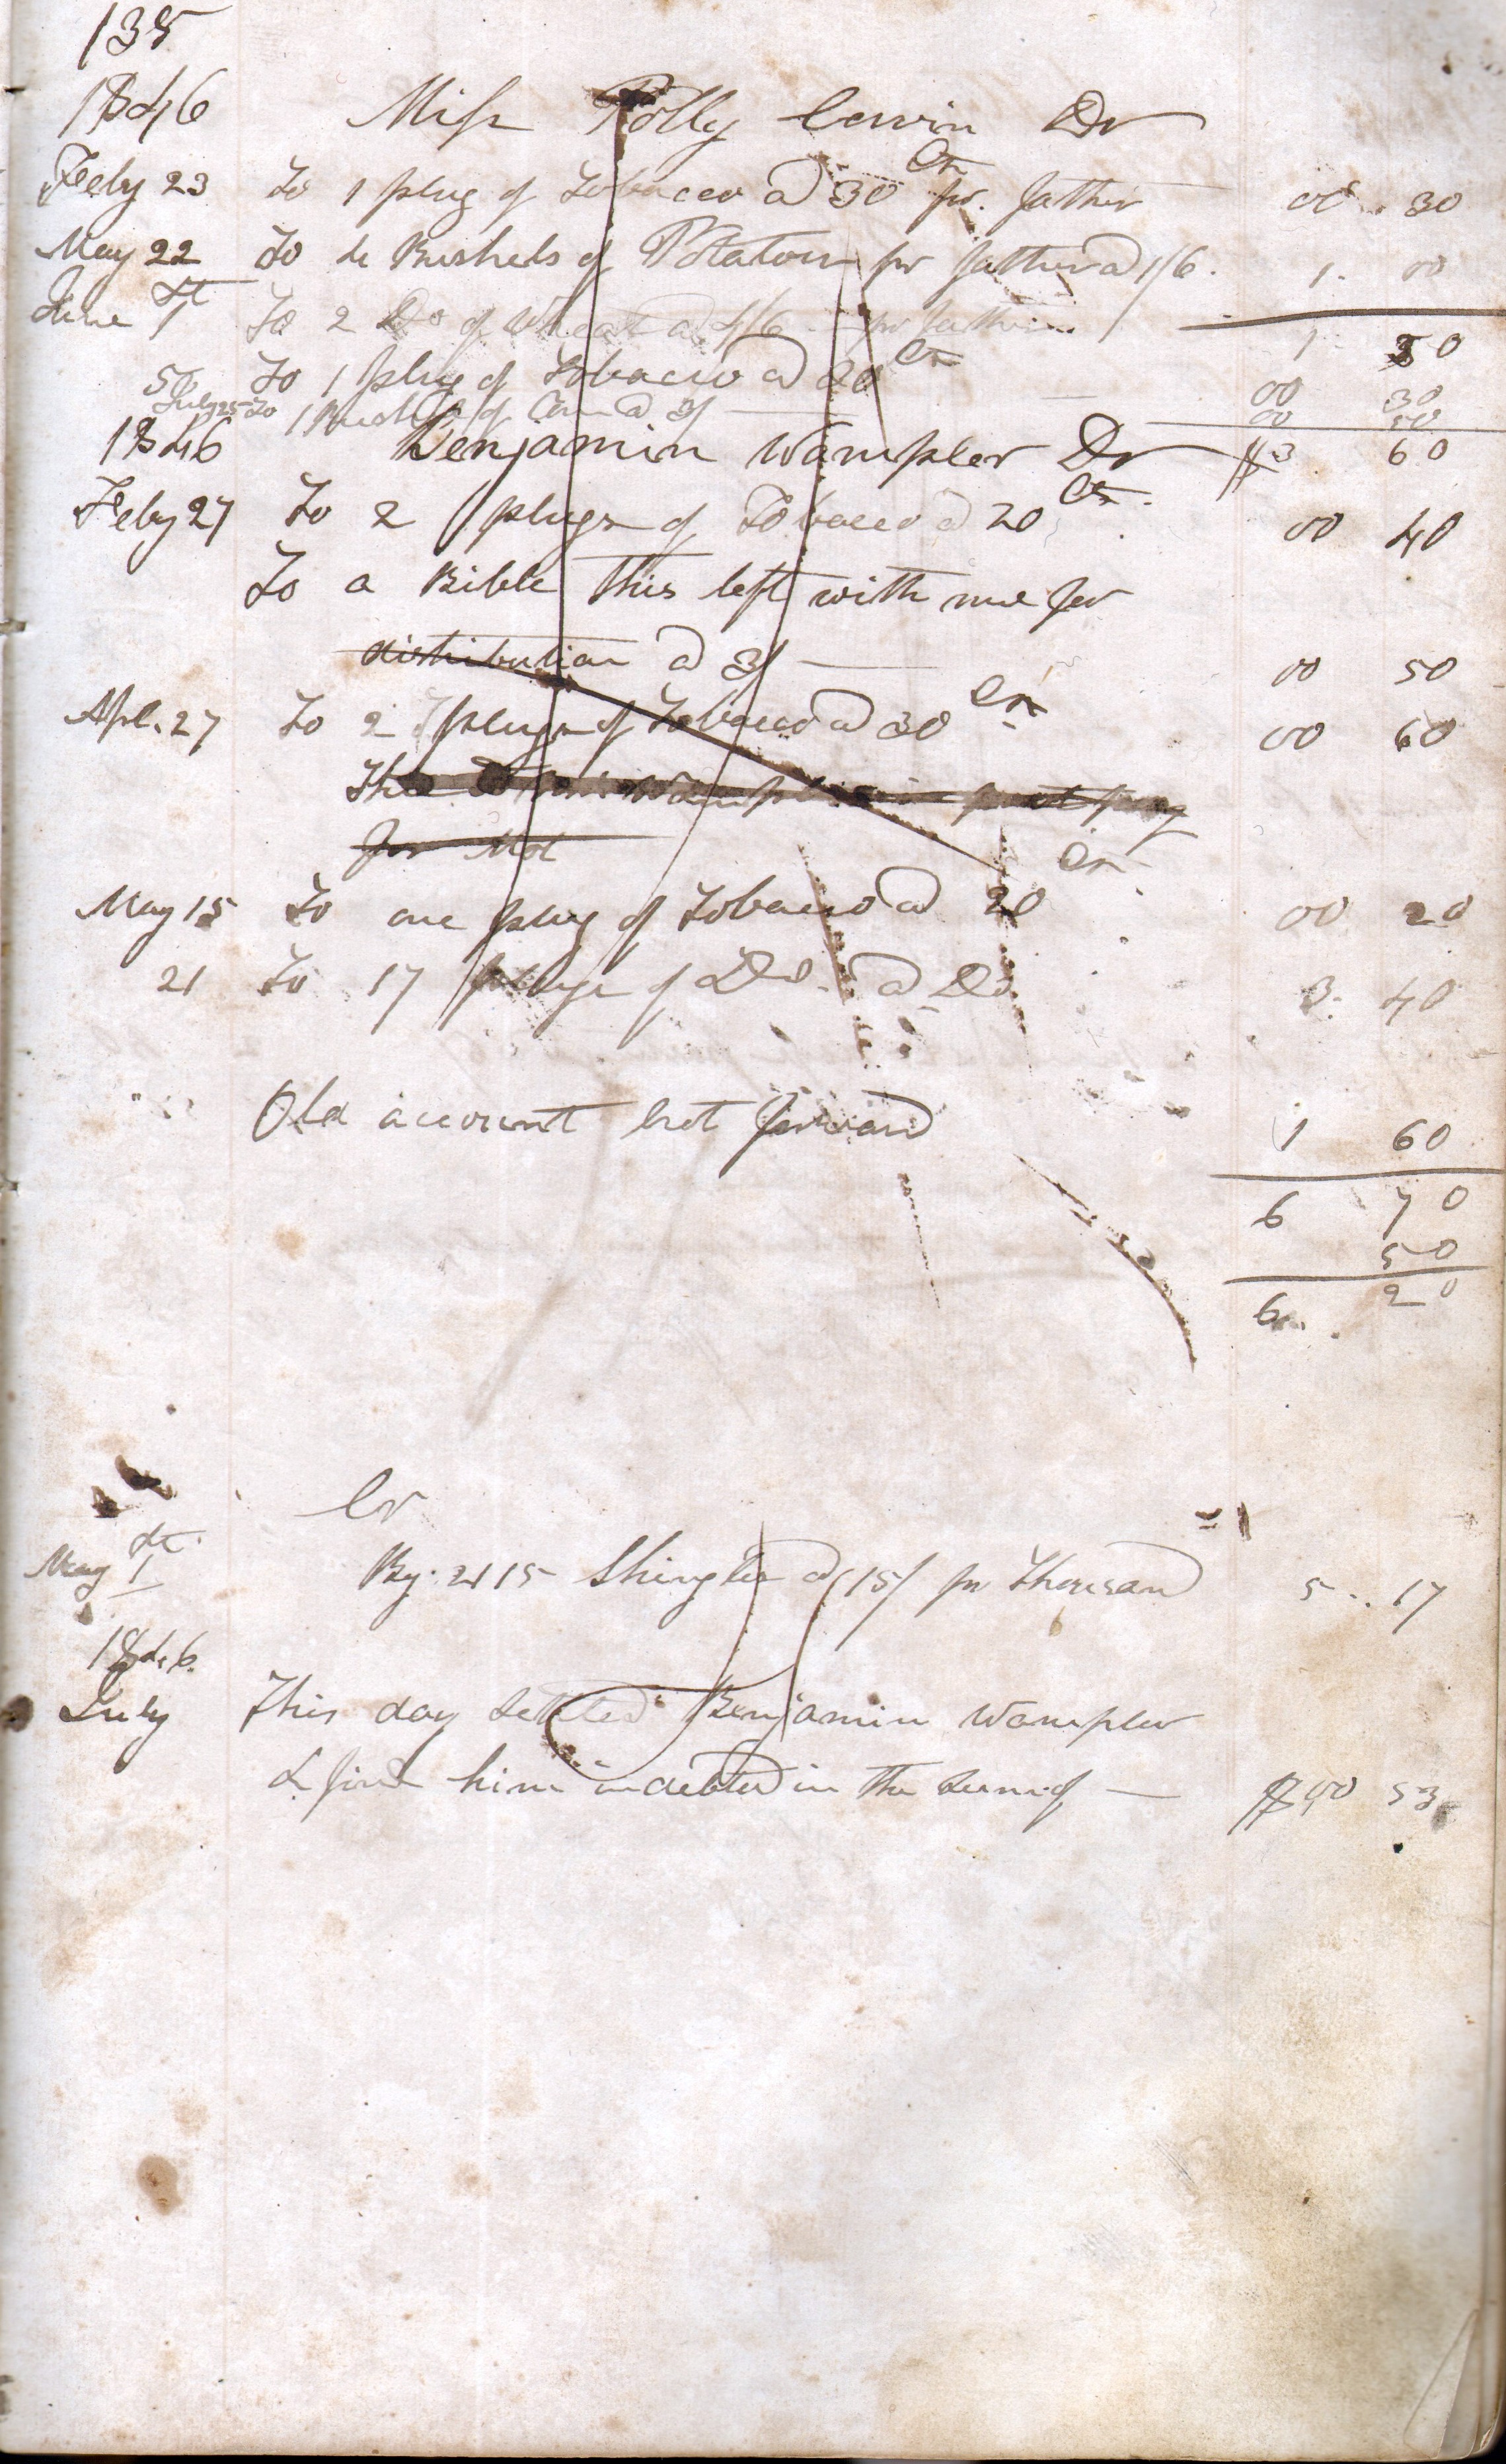 138
1846 Miss Polly Corvin Dr
Feby 23 To 1 plug of Tobacco @ 30 Cts pr. father 00 30
May 22 To 4 Bushels of Potatoes pr father @ 1/6. 1. 00
June 1st To 2 Do of Wheat @ 4/6 pr father 1 50
5 To 1 plug of Tobacco @ 30 Cts 00 30
July 25 To 1 Bushel of Corn @ 3/ 00 50
1846 Benjamin Wampler Dr $3 60
Feby 27 To 2 plugs of Tobacco @ 20 Cts. 00 40
To a Bible this left with me for
distribution @ 3/ 00 50
Apl. 27 To 2 plugs of Tobacco @ 30 Cts 00 60
This Wampler
for
Cts
May 15 To one plug of Tobacco @ 20 00 20
21 To 17 plugs of Do. @ Do 3. 40
Old account brot forward 1 60
6 70
50
6 20
Cr
May 1st By 2115 Shingles @ 15/ pr Thousand 5 17
1846.
July This day settled Benjamin Wampler
& find him indebted in the sum of $00 53